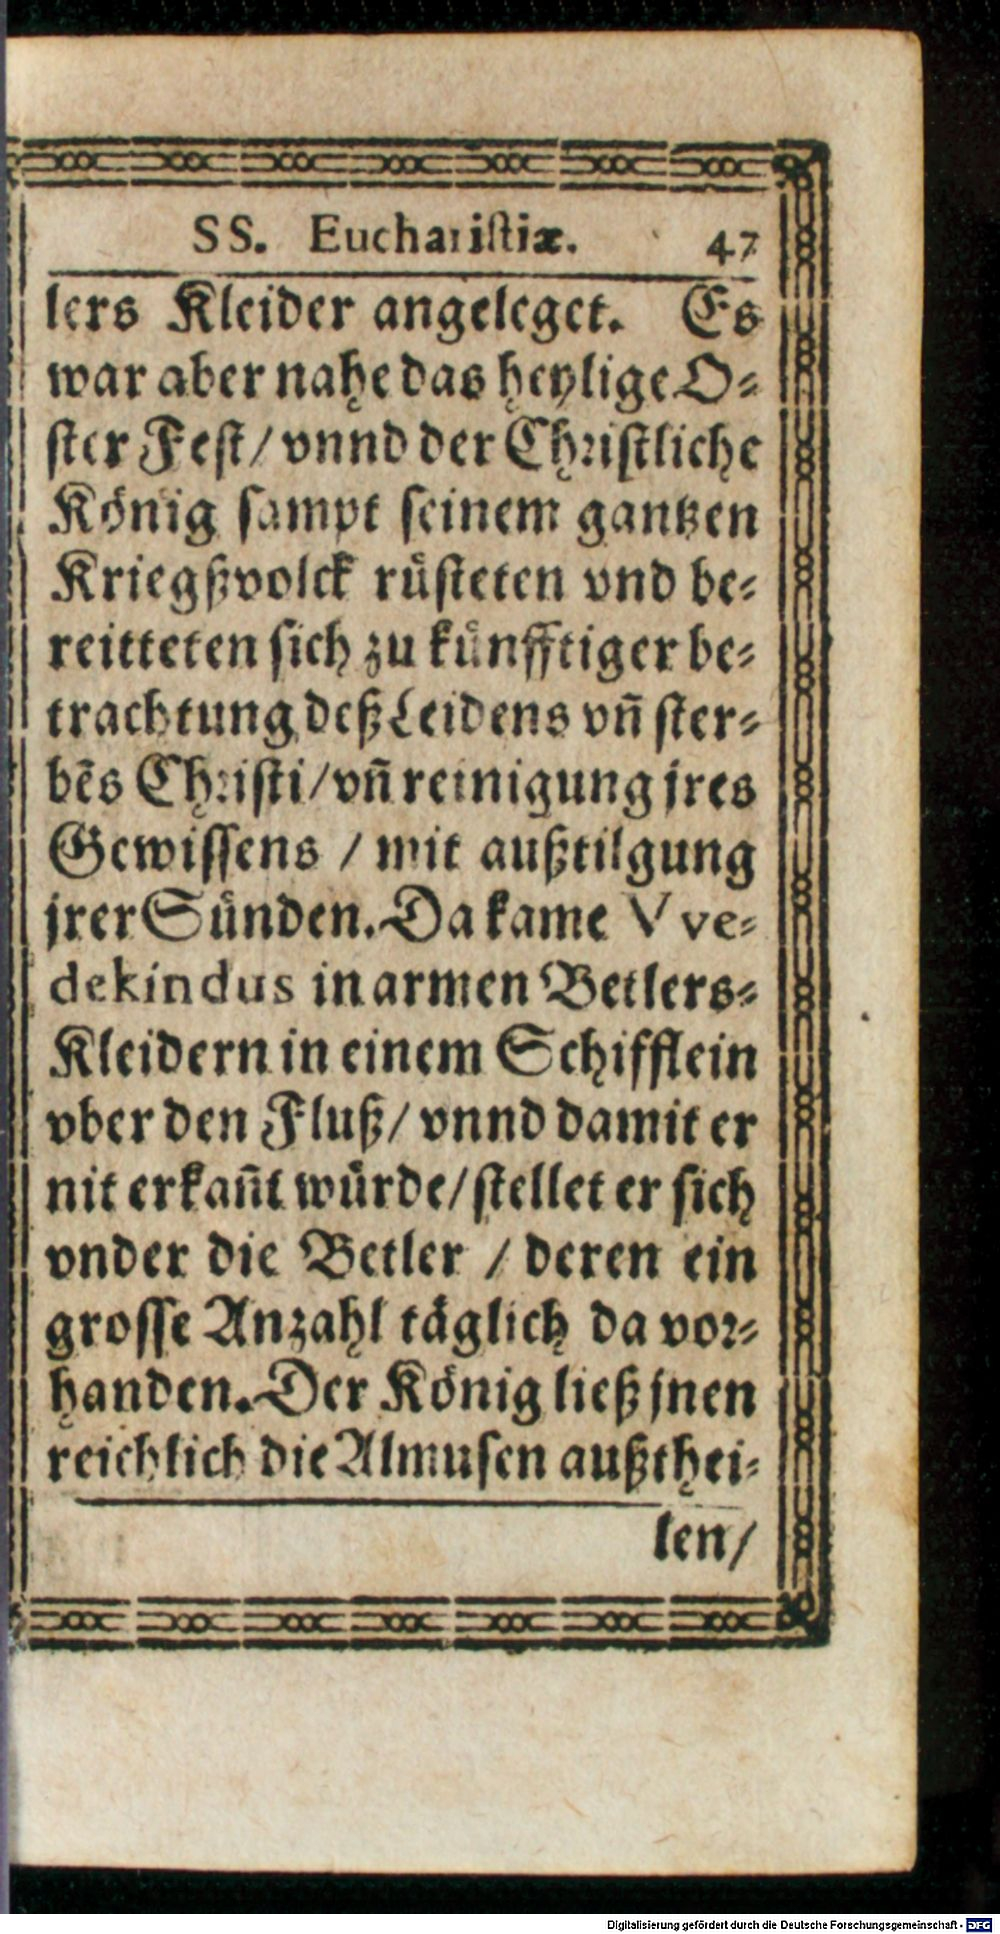 SS. Euchariſtiæ. 47
lers Kleider angeleget. Es
war aber nahe das heylige O⸗
ſter Feſt/ vnnd der Chriſtliche
König ſampt ſeinem gantzen
Kriegßvolck rüſteten vnd be⸗
reitteten ſich zu künfftiger be⸗
trachtung deß Leidens vñ ſter⸗
bẽs Chriſti/ vñ reinigung jres
Gewiſſens / mit außtilgung
jrer Sünden. Da kame VVe⸗
dekindus in armen Betlers⸗
Kleidern in einem Schifflein
vber den Fluß/ vnnd damit er
nit erkañt würde/ ſtellet er ſich
vnder die Betler / deren ein
groſſe Anzahl täglich da vor⸗
handen. Der König ließ jnen
reichlich die Almuſen außthei⸗
len/
Digitalisierung gefördert durch die Deutsche Forschungsgemeinschaft - DFG